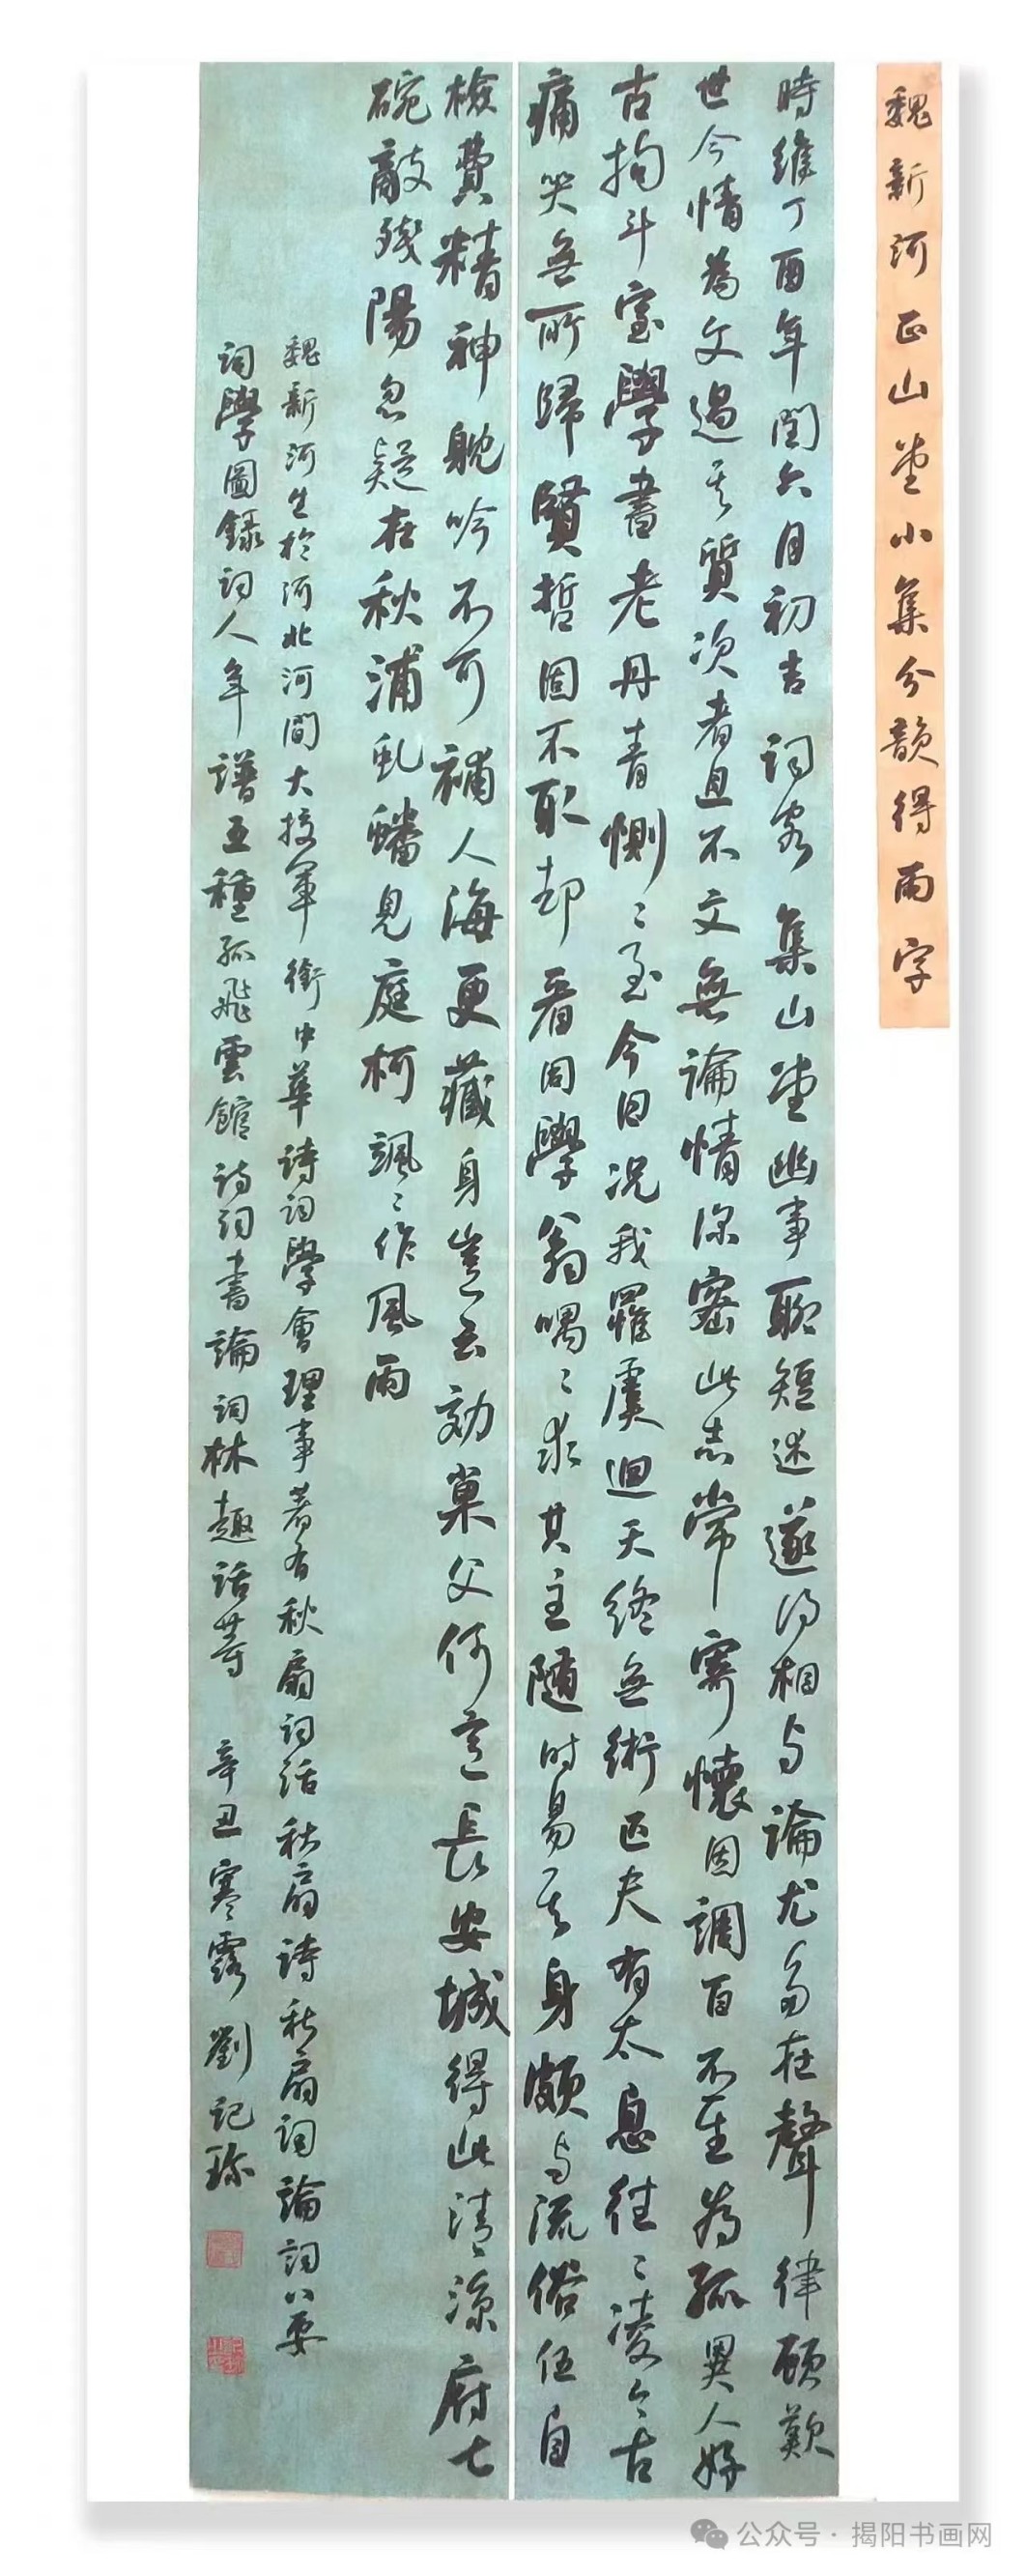 魏新河正山堂小集分韻得雨字
時維丁酉年閏六月初吉詞客集山堂幽事聊短述遂得相与論尤多在聲律顧歎
世今情為文過其質次者且不文無論情深密此志常寄懷因調百不宜為孤異人好
古拘斗室學書老丹青惻〻至今日况我羅虞迴天終無術匹夫有太息往〻凌今古
痛哭無所歸賢哲固不取却看同學翁喁〻求其主随时易其身頗与流俗伍自
檢費精神耽吟不可補人海更藏身豈云効巢父何意長安城得此清涼府七
碗敵殘陽忽疑在秋浦虬蟠見庭柯颯〻作風雨
魏新河生於河北河間大校軍銜中華詩詞學會理事著有秋扇詞話秋扇詩秋扇詞論詞八要
詞學圖錄詞人年譜五種孤飛雲館詩詞書論詞林趣話等 辛丑寒露劉記珍
公众号·揭阳书画网